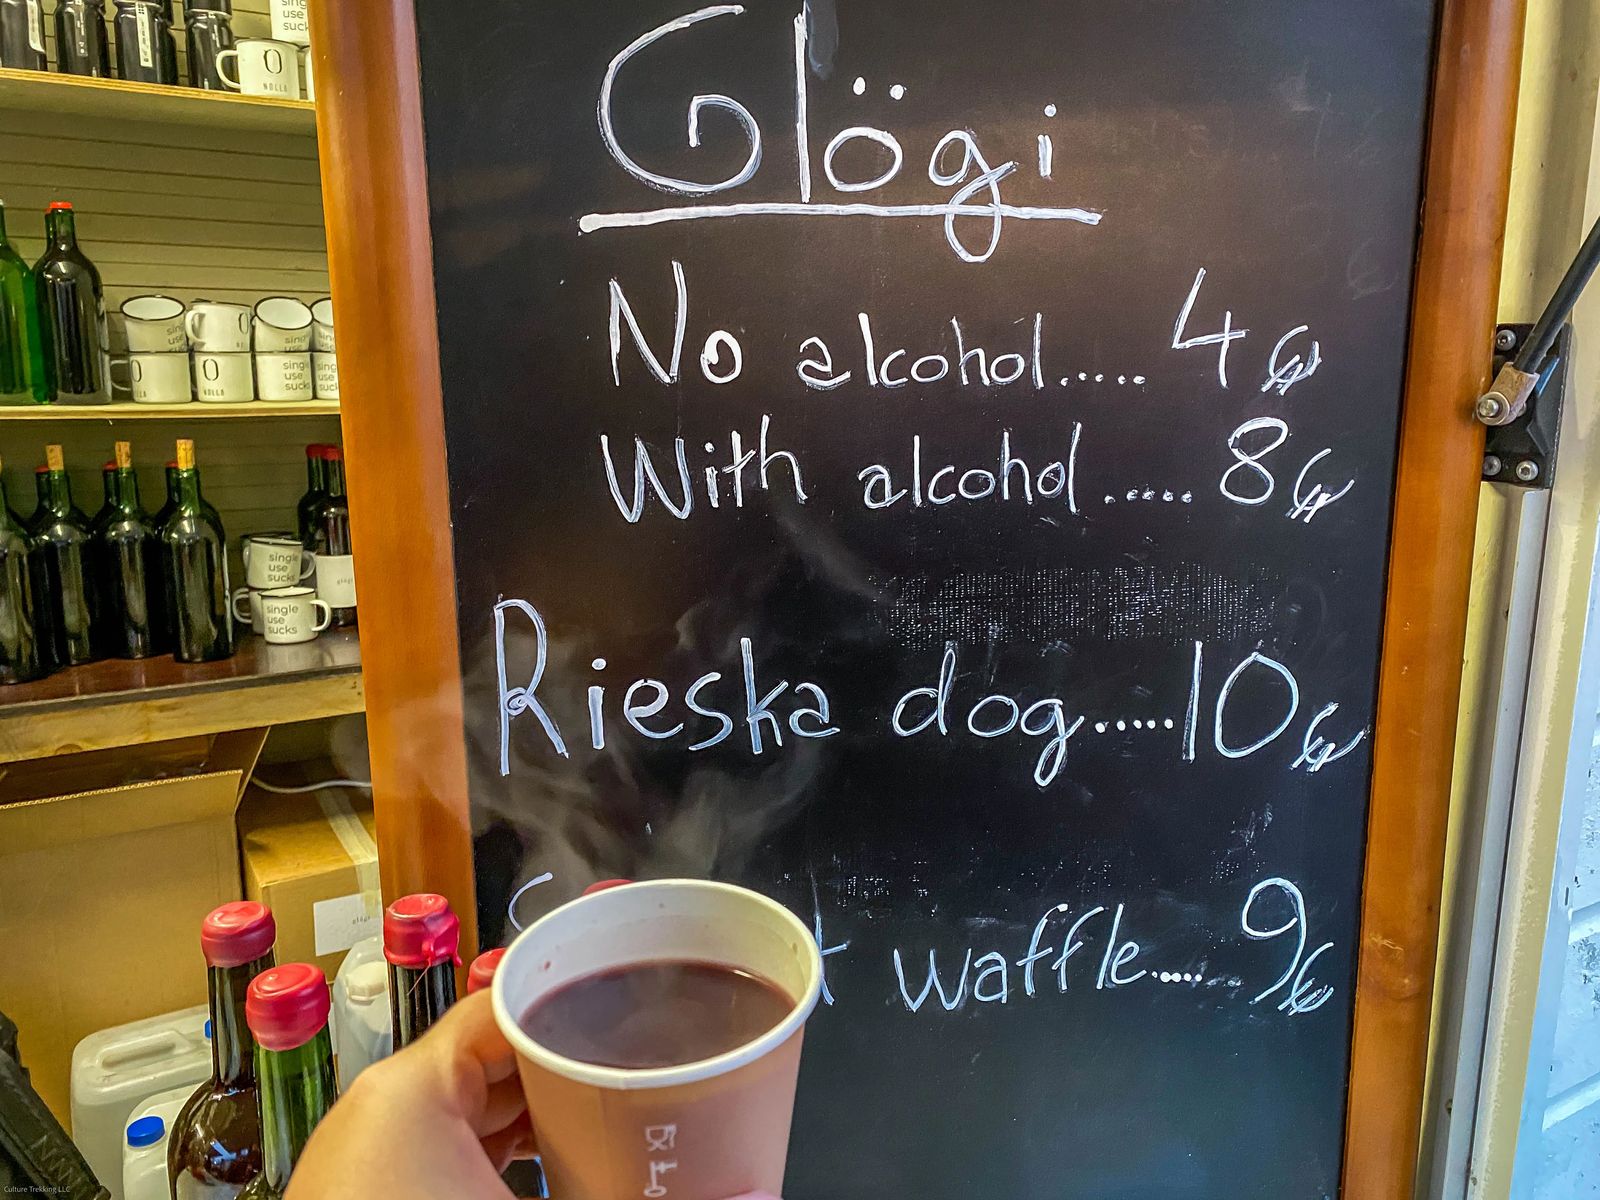 Glögi
No alcohol..... 4€
With alcohol..... 8€
Rieska dog.....10€
waffle..... 9€
single
use
sucks
O
NOLLA
single
use
sucks
single
use
sucks
single
use
sucks
glögi
Culture Trekking LLC